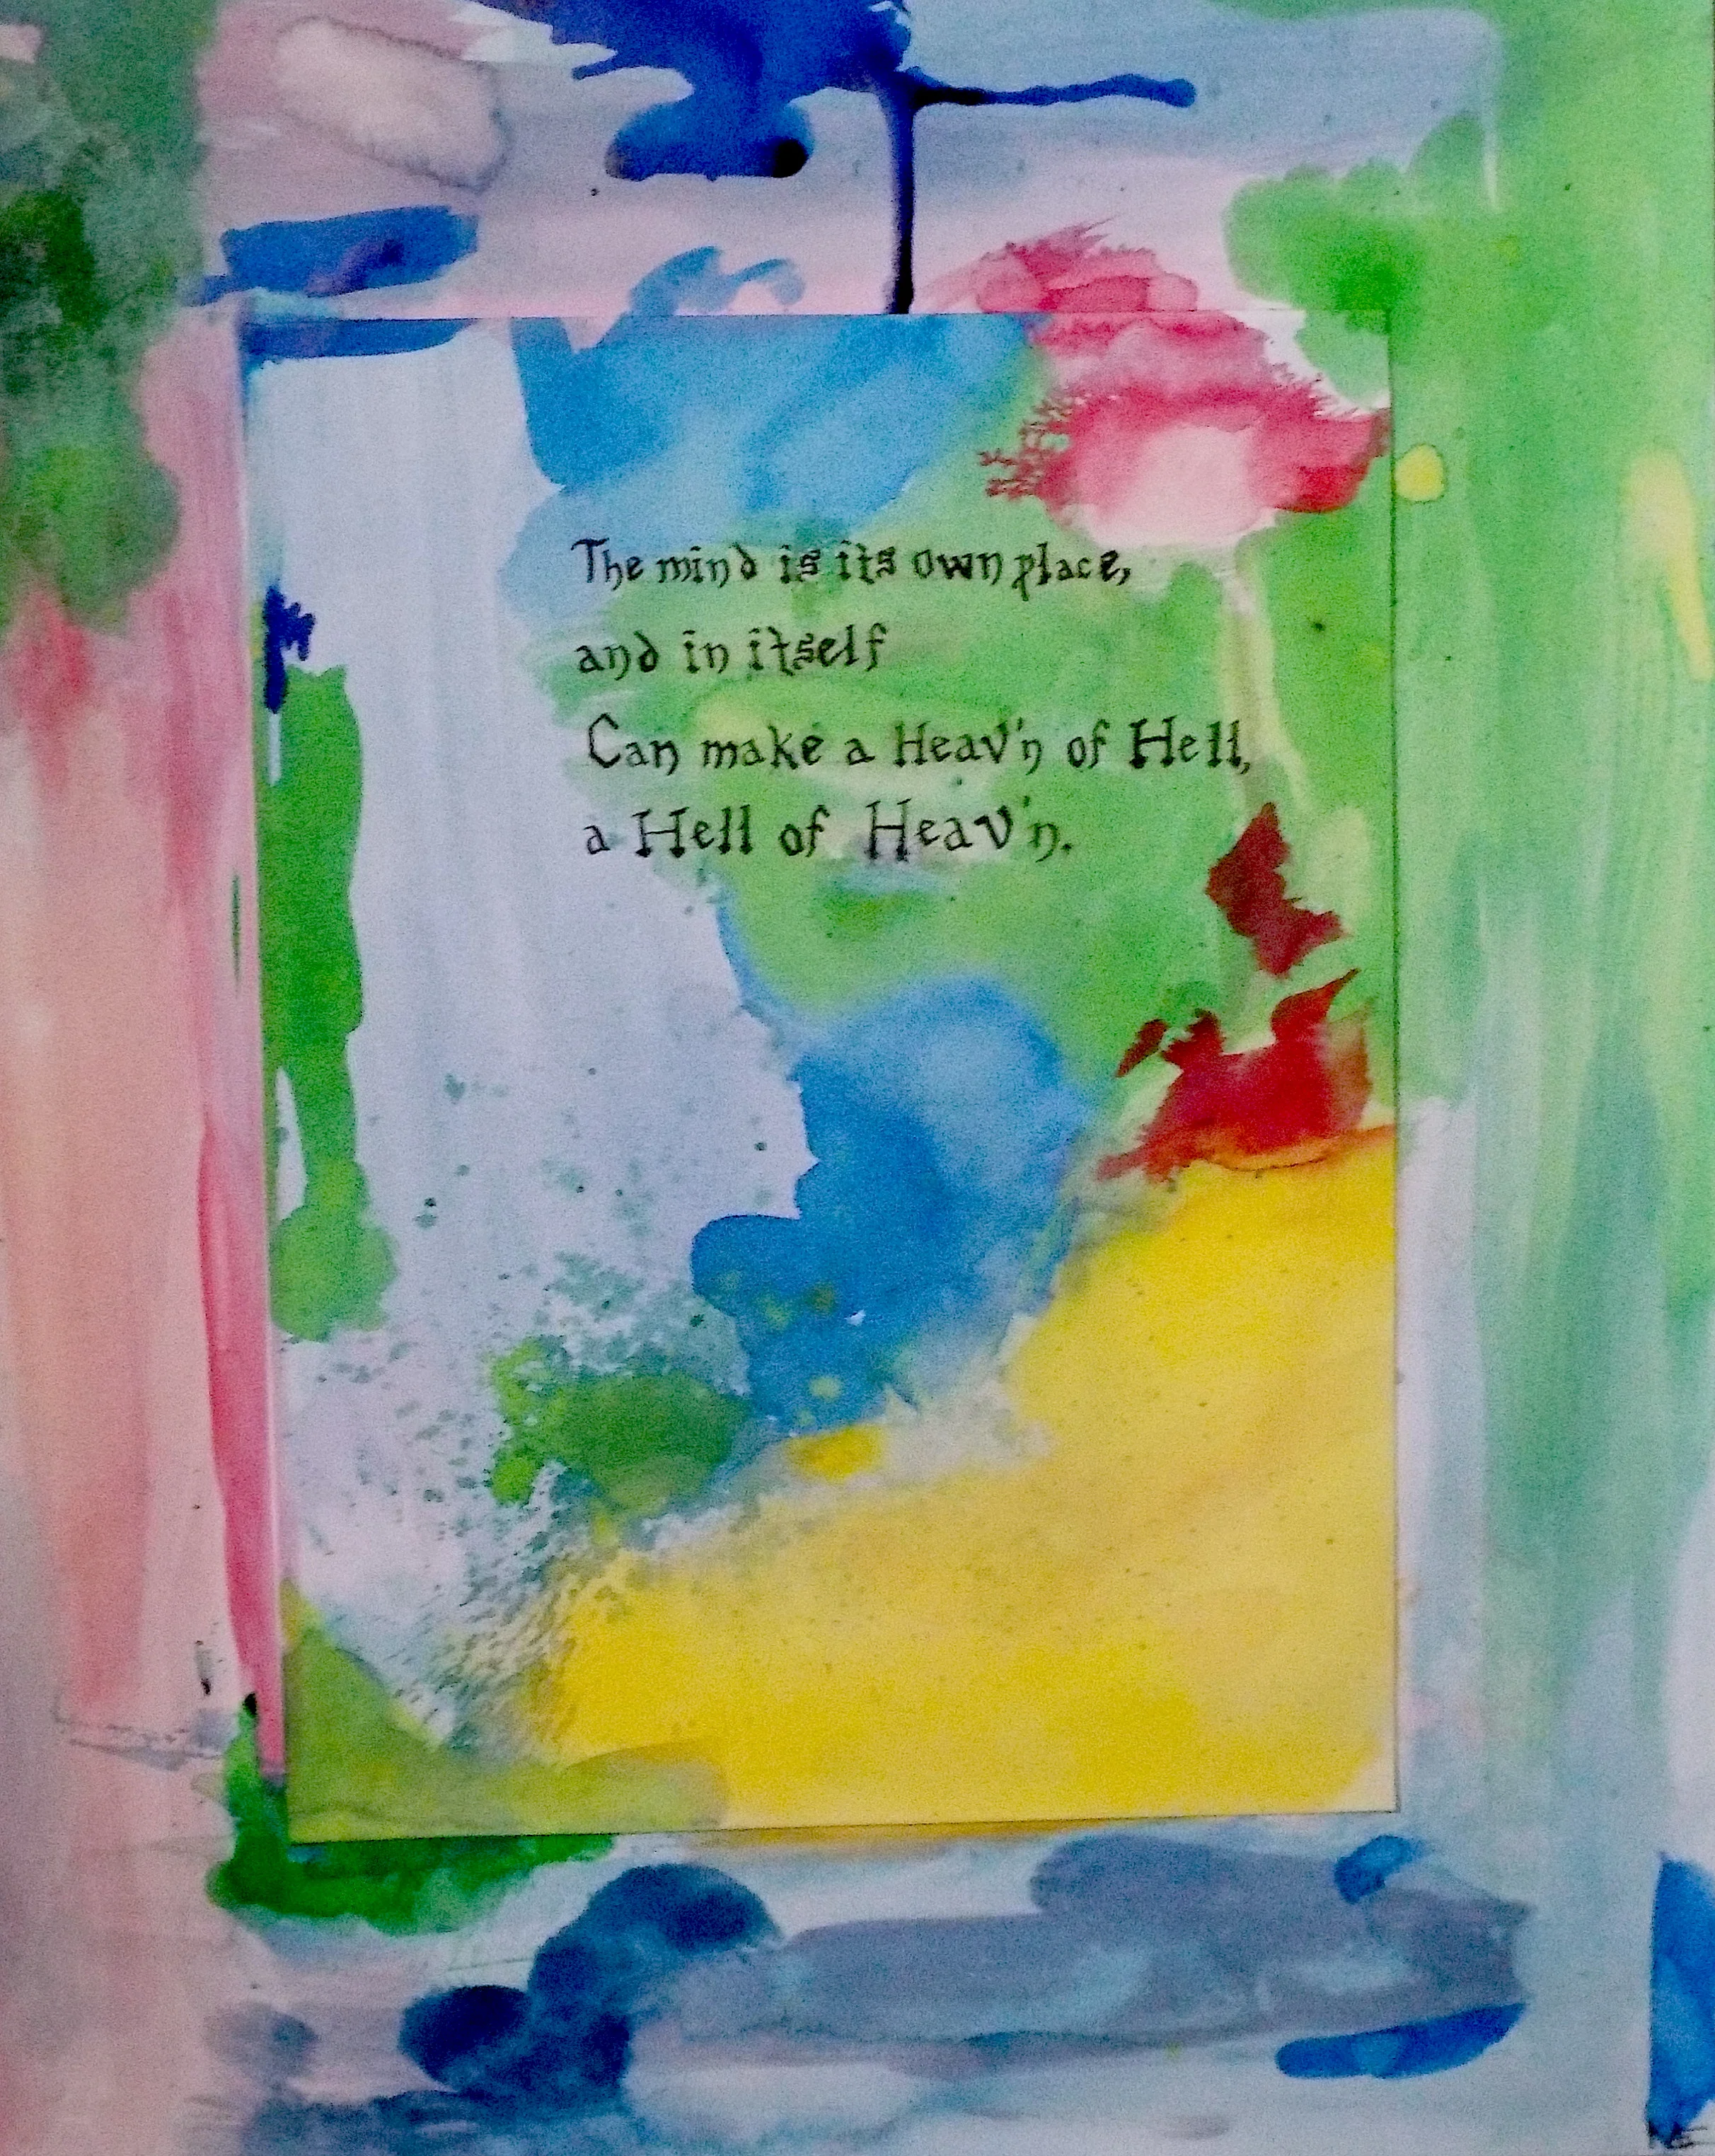 The mind is its own place,
and in itself
Can make a Heav'n of Hell,
a Hell of Heav'n.